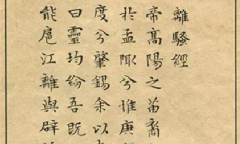 離騷經
帝高陽之苗裔
於孟陬兮惟庚
度兮肇錫余以
曰靈均紛吾既
能扈江離與辟